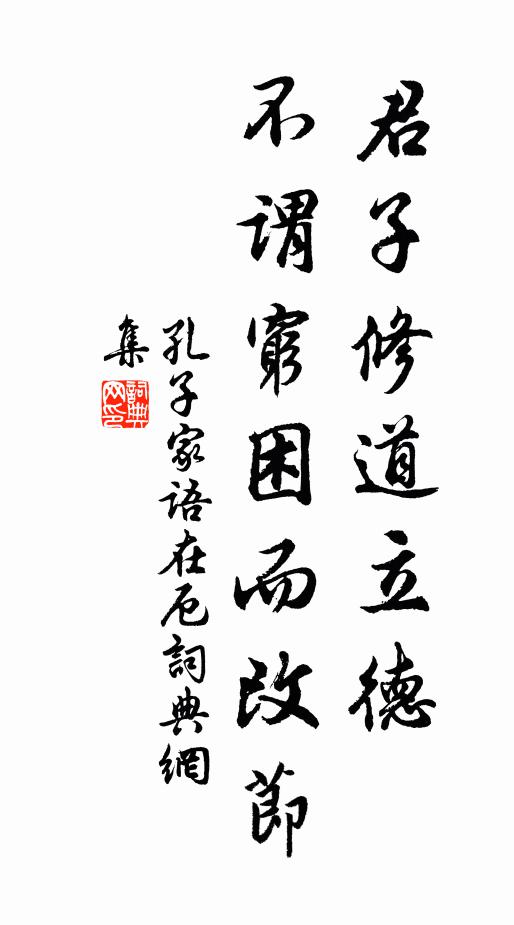 君子修道立德
不谓窮困而改節
孔子家语在厄詞典網
集
詞典
网印